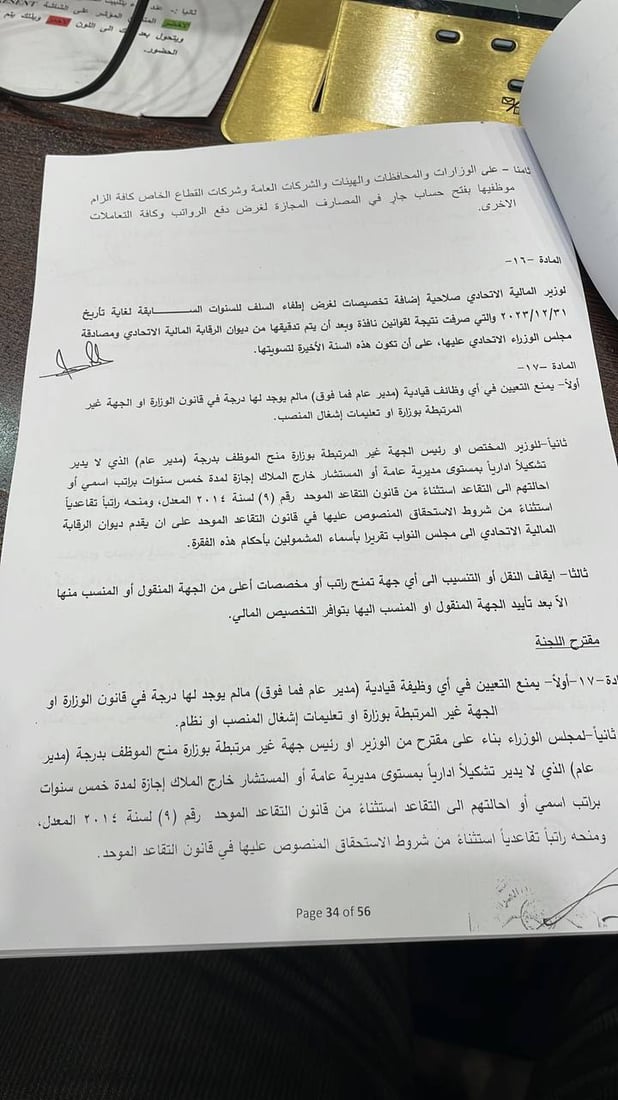 ثانيا :-
بتثبيت
المؤشر على الشاشة
الأخضر
ويتحول بعد
الى اللون
الاحمر
وبذلك يتم
الحضور.
ثامنا – على الوزارات والمحافظات والهيئات والشركات العامة وشركات القطاع الخاص كافة الزام
موظفيها بفتح حساب جارٍ في المصارف المجازة لغرض دفع الرواتب وكافة التعاملات
الاخرى.
المادة -١٦-
لوزير المالية الاتحادي صلاحية إضافة تخصيصات لغرض إطفاء السلف للسنوات الســـــــابقة لغاية تأريخ
٢٠٢٣/١٢/٣١ والتي صرفت نتيجة لقوانين نافذة وبعد أن يتم تدقيقها من ديوان الرقابة المالية الاتحادي ومصادقة
مجلس الوزراء الاتحادي عليها، على أن تكون هذه السنة الأخيرة لتسويتها.
المادة -١٧-
أولاً- يمنع التعيين في أي وظائف قيادية (مدير عام فما فوق) مالم يوجد لها درجة في قانون الوزارة او الجهة غير
المرتبطة بوزارة او تعليمات إشغال المنصب.
ثانياً-للوزير المختص او رئيس الجهة غير المرتبطة بوزارة منح الموظف بدرجة (مدير عام) الذي لا يدير
تشكيلاً ادارياً بمستوى مديرية عامة أو المستشار خارج الملاك إجازة لمدة خمس سنوات براتب اسمي أو
احالتهم الى التقاعد استثناءً من قانون التقاعد الموحد رقم (٩) لسنة ٢٠١٤ المعدل، ومنحه راتباً تقاعدياً
استثناءً من شروط الاستحقاق المنصوص عليها في قانون التقاعد الموحد على ان يقدم ديوان الرقابة
المالية الاتحادي الى مجلس النواب تقريرا بأسماء المشمولين بأحكام هذه الفقرة.
ثالثا- ايقاف النقل أو التنسيب الى أي جهة تمنح راتب أو مخصصات أعلى من الجهة المنقول أو المنسب منها
الاّ بعد تأييد الجهة المنقول او المنسب اليها بتوافر التخصيص المالي.
مقترح اللجنة
ادة-١٧-أولاً- يمنع التعيين في أي وظيفة قيادية (مدير عام فما فوق) مالم يوجد لها درجة في قانون الوزارة او
الجهة غير المرتبطة بوزارة او تعليمات إشغال المنصب او نظام.
ثانياً-لمجلس الوزراء بناء على مقترح من الوزير او رئيس جهة غير مرتبطة بوزارة منح الموظف بدرجة (مدير
عام) الذي لا يدير تشكيلاً ادارياً بمستوى مديرية عامة أو المستشار خارج الملاك إجازة لمدة خمس سنوات
براتب اسمي أو احالتهم الى التقاعد استثناءً من قانون التقاعد الموحد رقم (٩) لسنة ٢٠١٤ المعدل،
ومنحه راتباً تقاعدياً استثناءً من شروط الاستحقاق المنصوص عليها في قانون التقاعد الموحد.
Page 34 of 56